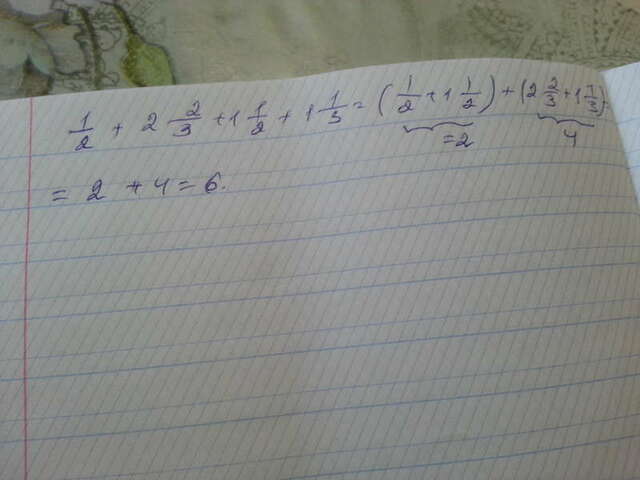 1/2 + 2 2/3 + 1 1/2 + 1 1/3 = (1/2 + 1 1/2) + (2 2/3 + 1 1/3) =
=2 4
= 2 + 4 = 6.